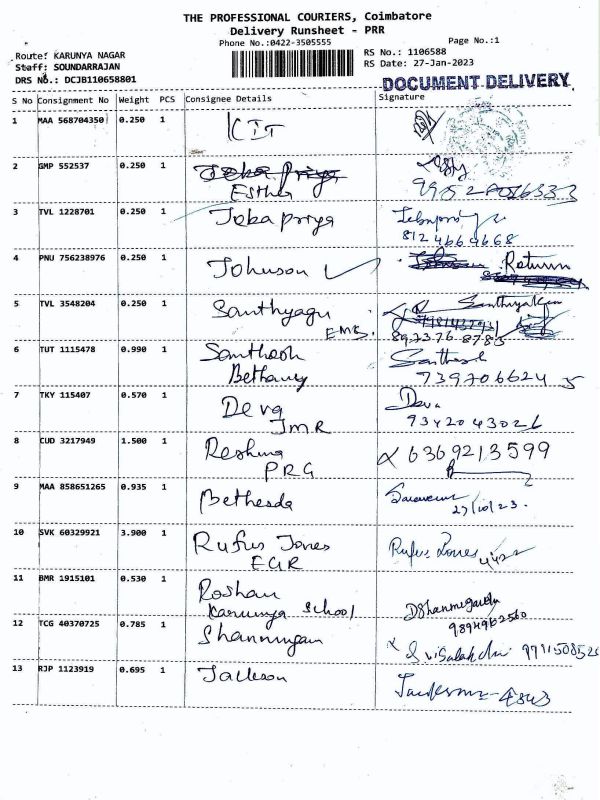 THE PROFESSIONAL COURIERS, Coimbatore
Delivery Runsheet - PRR
Phone No.:0422-3505555
Page No.:1
Route: KARUNYA NAGAR
RS No.: 1106588
Staff: SOUNDARRAJAN
RS Date: 27-Jan-2023
DRS No.: DCJB110658801
DOCUMENT DELIVERY
S No Consignment No Weight PCS Consignee Details Signature
1 MAA 568704350 0.250 1 KIT
2 GMP 552537 0.250 1
Esther
3 TVL 1228701 0.250 1 Jeba priya
8124669668
4 PNU 756238976 0.250 1 Johnson Return
5 TVL 3548204 0.250 1 Santhyagu
EMS. 8973768785
6 TUT 1115478 0.990 1 Santhosh Santhosh
Bethany 7397066245
7 TKY 115407 0.570 1 Deva Deva
JMR 9342043026
8 CUD 3217949 1.500 1 Reshma 6369213599
PRG
9 MAA 858651265 0.935 1 Bethesda
27/10/23.
10 SVK 60329921 3.900 1 Rufus Jones Rufus Jones
EGR
11 BMR 1915101 0.530 1 Roshan
Karunya School
12 TCG 40370725 0.785 1 Shanmugam
13 RJP 1123919 0.695 1 Jackson
4843